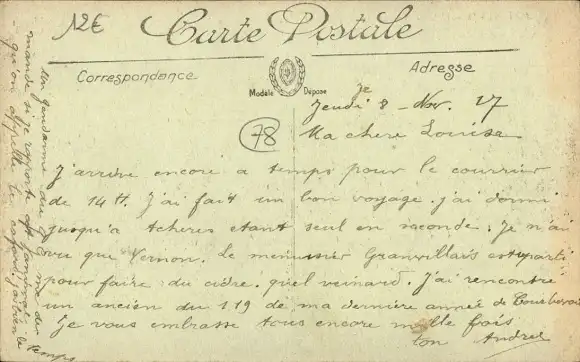 12€
Carte Postale
Correspondance
Adresse
Modèle Déposé
Jeudi 8 - Nov. 17
78
Ma chere Louise
J'arrive encore a temps pour le courrier
de 14H. J'ai fait un bon voyage. j'ai dormi
jusqu'a Acheres etant seul en seconde. Je n'ai
vu que Vernon. Le menuisier Granvillars est parti
pour faire du cidre. quel veinard. J'ai rencontré
un ancien du 119 de ma dernière année de Courbevoie
Je vous embrasse tous encore mille fois
ton André
Un gendarme me de
mande si je
qu'on appelle
temps